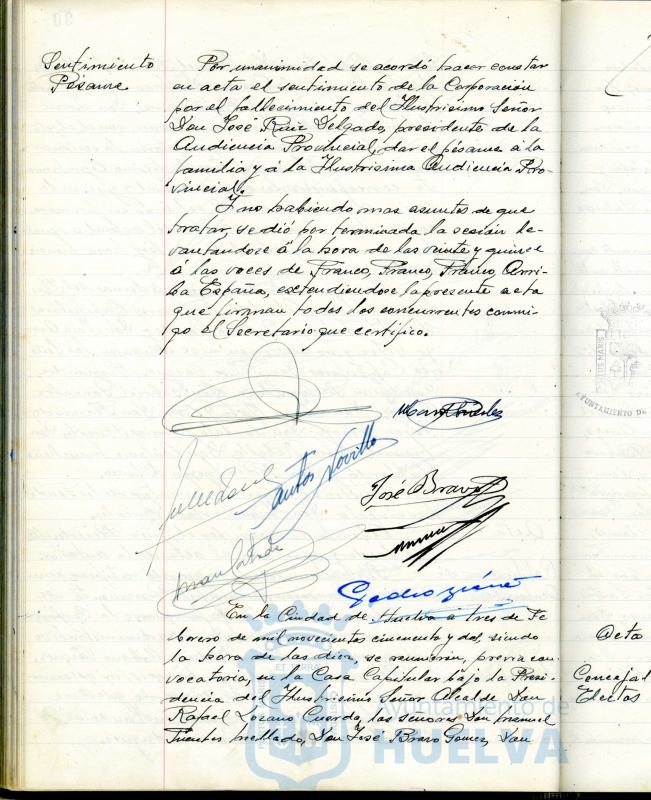 Sentimiento
Pésame
Por unanimidad se acordó hacer constar
en acta el sentimiento de la Corporación
por el fallecimiento del Ilustrísimo Señor
Don José Ruiz Delgado, presidente de la
Audiencia Provincial, dar el pésame á la
familia y á la Ilustrisima Audiencia Pro-
vincial.
Y no habiendo mas asuntos de que
tratar, se dió por terminada la sesión le-
vantandose á la hora de las veinte y quince
á las voces de Franco, Franco, Franco, Arri-
ba España, extendiendose la presente acta
que firman todos los concurrentes conmi-
go el Secretario que certifico.
Santos Novillo
José Bravo
Pedro
En la Ciudad de Huelva á tres de Fe
brero de mil novecientos cincuenta y dos, siendo
la hora de las diez, se reunieron, previa con
vocatoria, en la Casa Capitular bajo la Presi-
dencia del Ilustrisimo Señor Alcalde Don
Rafael Lozano Cuerda, los señores Don Manuel
Fuentes Mellado, Don José Bravo Gomez, Don
Acta
Concejal
Electos
US MARIS
AYUNTAMIENTO DE
Ayuntamiento de
HUELVA